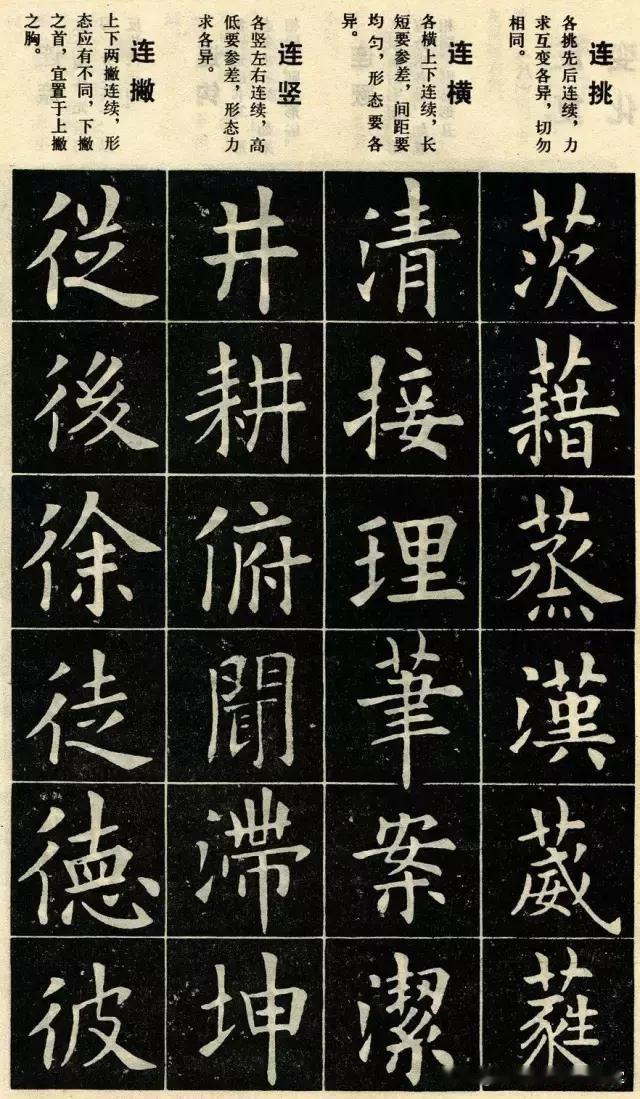 连挑
各挑先后连续，力
求互变各异，切勿
相同。
茨藉蒸漢葳蕤
连横
各横上下连续，长
短要参差，间距要
均匀，形态要各
异。
清接理筆案潔
连竖
各竖左右连续，高
低要参差，形态力
求各异。
井耕俯聞滞坤
连撇
上下两撇连续，形
态应有不同，下撇
之首，宜置于上撇
之胸。
従後徐徒徳彼